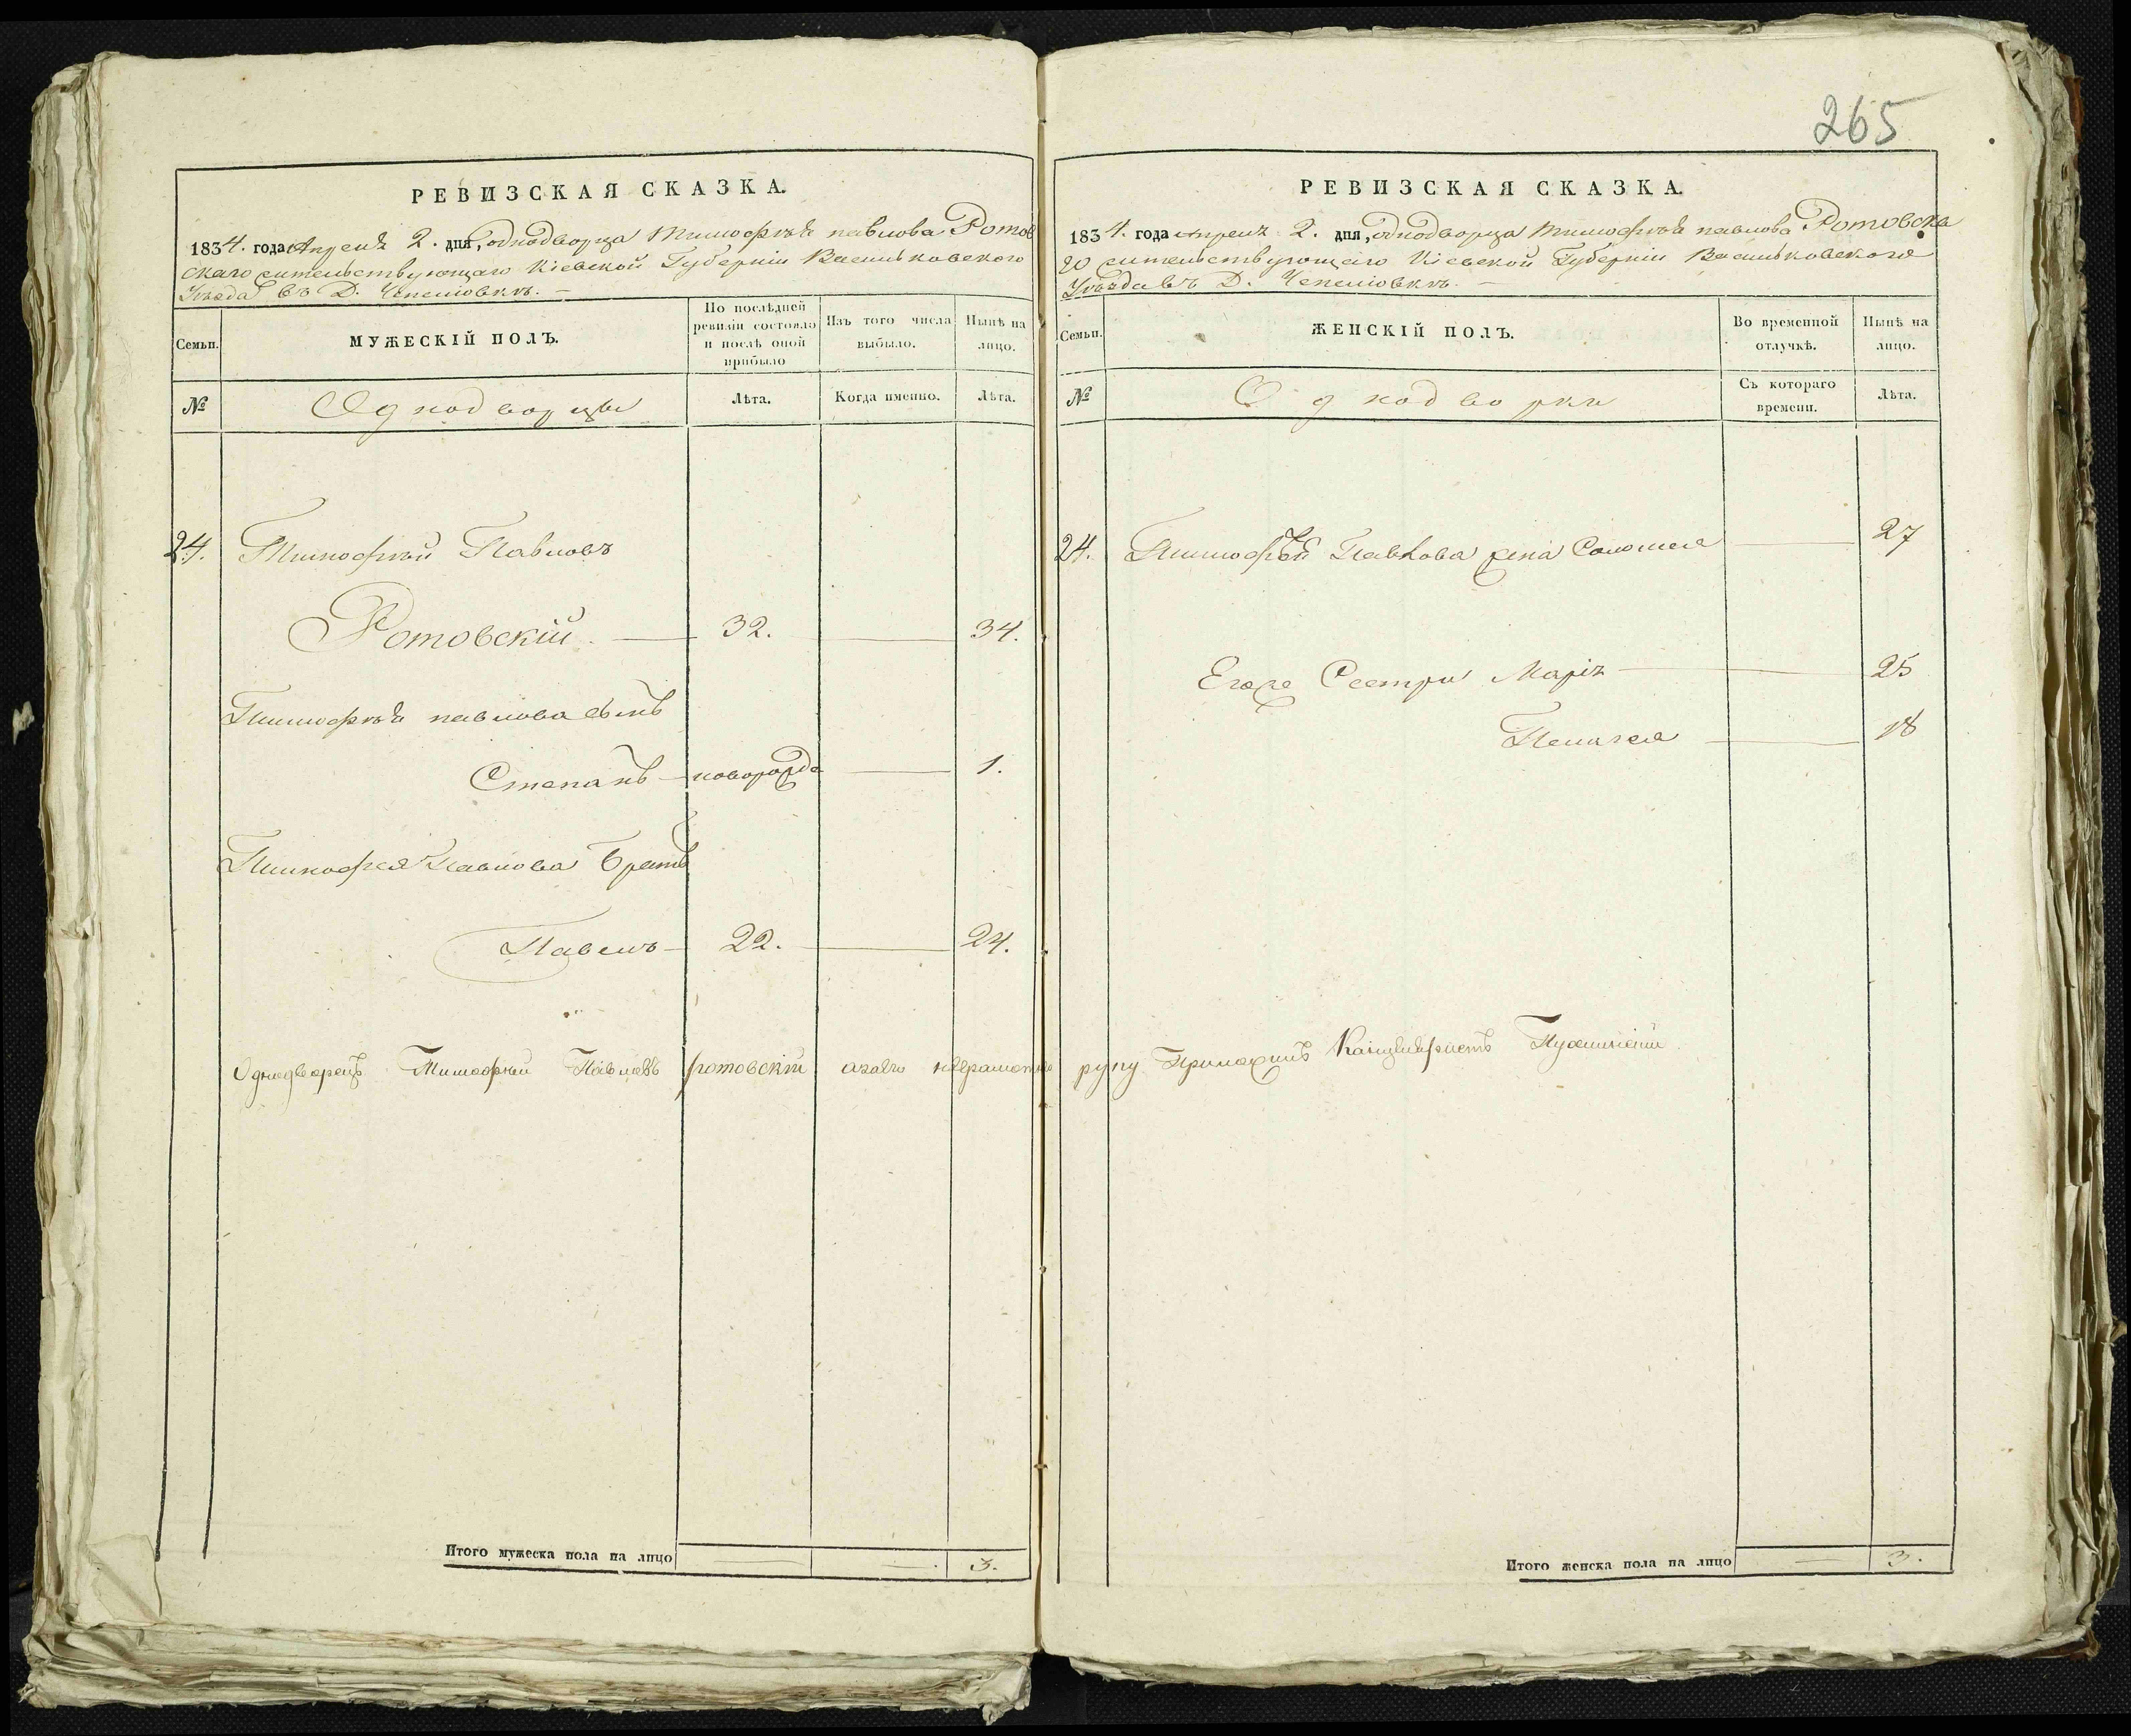 265
РЕВИЗСКАЯ СКАЗКА.
1834. года Апреля 2. дня, однодворца Тимофѣя павлова Ротов
скаго жительствующаго Кіевской Губерніи Васильковского
Уѣзда въ Д. Чепелiовкѣ.
Семьи. МУЖЕСКІЙ ПОЛЪ. По послѣдней ревизіи состояло и послѣ оной прибыло Изъ того числа выбыло. Нынѣ на лицо.
№ Однодворцы Лѣта. Когда именно. Лѣта.
24. Тимофѣй Павловъ
Ротовскій 32. 34.
Тимофѣя павлова сынъ
Степанъ новорожде 1.
Тимофея Павлова Братъ
Павелъ 22. 24.
Однодворецъ Тимофѣй Павловъ Ротовскій
Итого мужеска пола на лицо 3.
РЕВИЗСКАЯ СКАЗКА.
1834. года Апреля 2. дня, однодворца Тимофѣя павлова Ротовска
го жительствующаго Кіевской Губерніи Васильковского
Уѣзда въ Д. Чепелiовкѣ.
Семьи. ЖЕНСКІЙ ПОЛЪ. Во временной отлучкѣ. Нынѣ на лицо.
№ Однодворки Съ котораго времени. Лѣта.
24. Тимофѣй Павлова жена Соломея 27
Егоже Сестры Марія 25
Пелагея 18
руку Приложилъ Канцеляристъ
Итого женска пола на лицо 3.